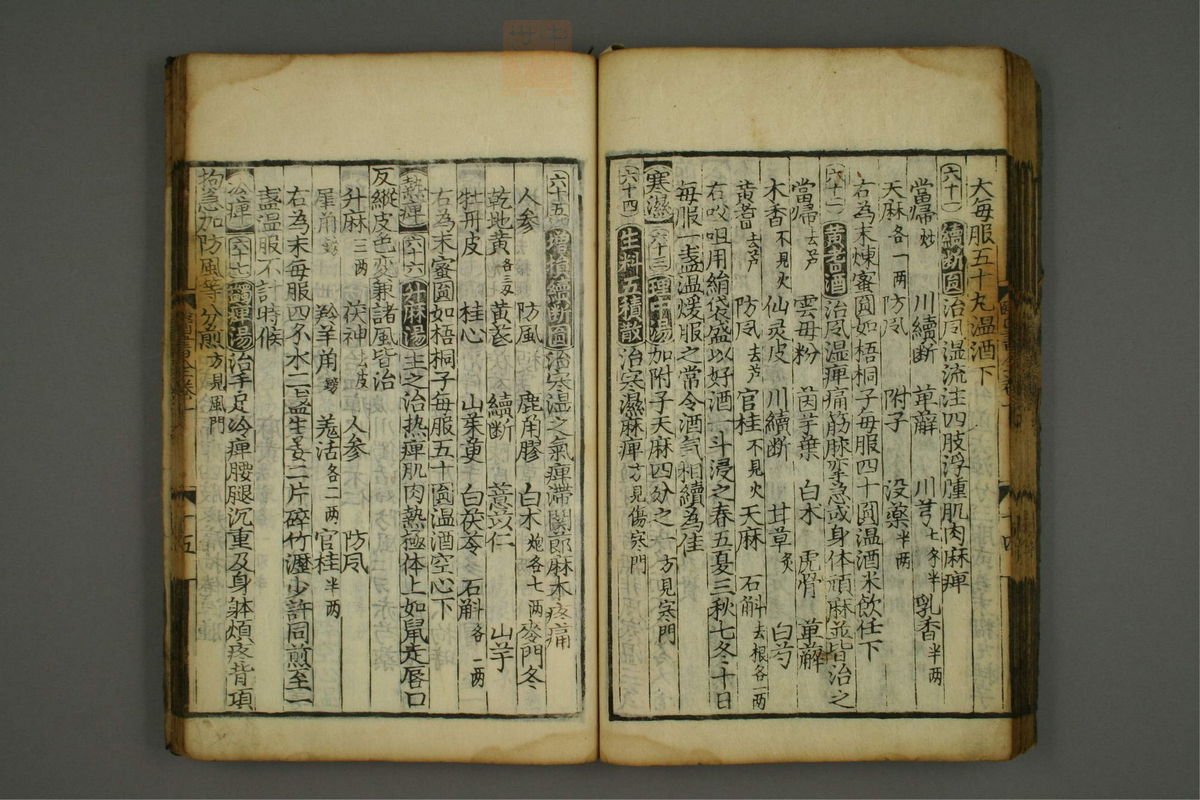 大每服五十丸温酒下
六十一 續斷圓 治风湿流注四肢浮腫肌肉麻痺
當㷌炒 川續断 萆薢 川芎七㦮半 乳香半两
天麻各一两 防风 附子 没藥半两
右為末煉蜜圓如梧桐子每服四十圓温酒米飲任下
六十二 黄耆酒 治风湿痺痛筋脉挛急或身体頑麻並皆治之
當歸去芦 雲母粉 茵芋葉 白朮 虎骨 萆薢
木香不見火 仙灵皮 川續断 甘草炙 白芍
黄耆去芦 防风去芦 官桂不見火 天麻 石斛去根各一两
右㕮咀用絹袋盛以好酒一斗浸之春五夏三秋七冬十日
每服一盞温煖服之常令酒气相續為佳
寒濕 六十三 理中湯 加附子天麻四分之一方見寒門
六十四 生料五積散 治寒濕麻痺方見傷寒門
六十五 增損續断圓 治寒湿之氣痺滯関節麻木疼痛
人参 防風 鹿角膠 白朮炮各七两 麥門冬
乾地黄各三㦮 黄芪 續断 薏苡仁 山芋
牡丹皮 桂心 山茱萸 白茯苓 石斛各一两
右為末蜜圓如梧桐子每服五十圓温酒空心下
熱痺 六十六 升麻湯 主之治热痺肌肉熱極体上如鼠走唇口
反縱皮色变兼諸風皆治
升麻三两 茯神去皮 人参 防风
犀角鎊 羚羊角鎊 羗活各二两 官桂半两
右為末每服四不水二盞生姜二片碎竹瀝少許同煎至一
盞温服不計時候
冷痺 六十七 蠲痺湯 治手足冷痺腰腿沉重及身躰煩疼背項
拘急加防風等分煎方見風門